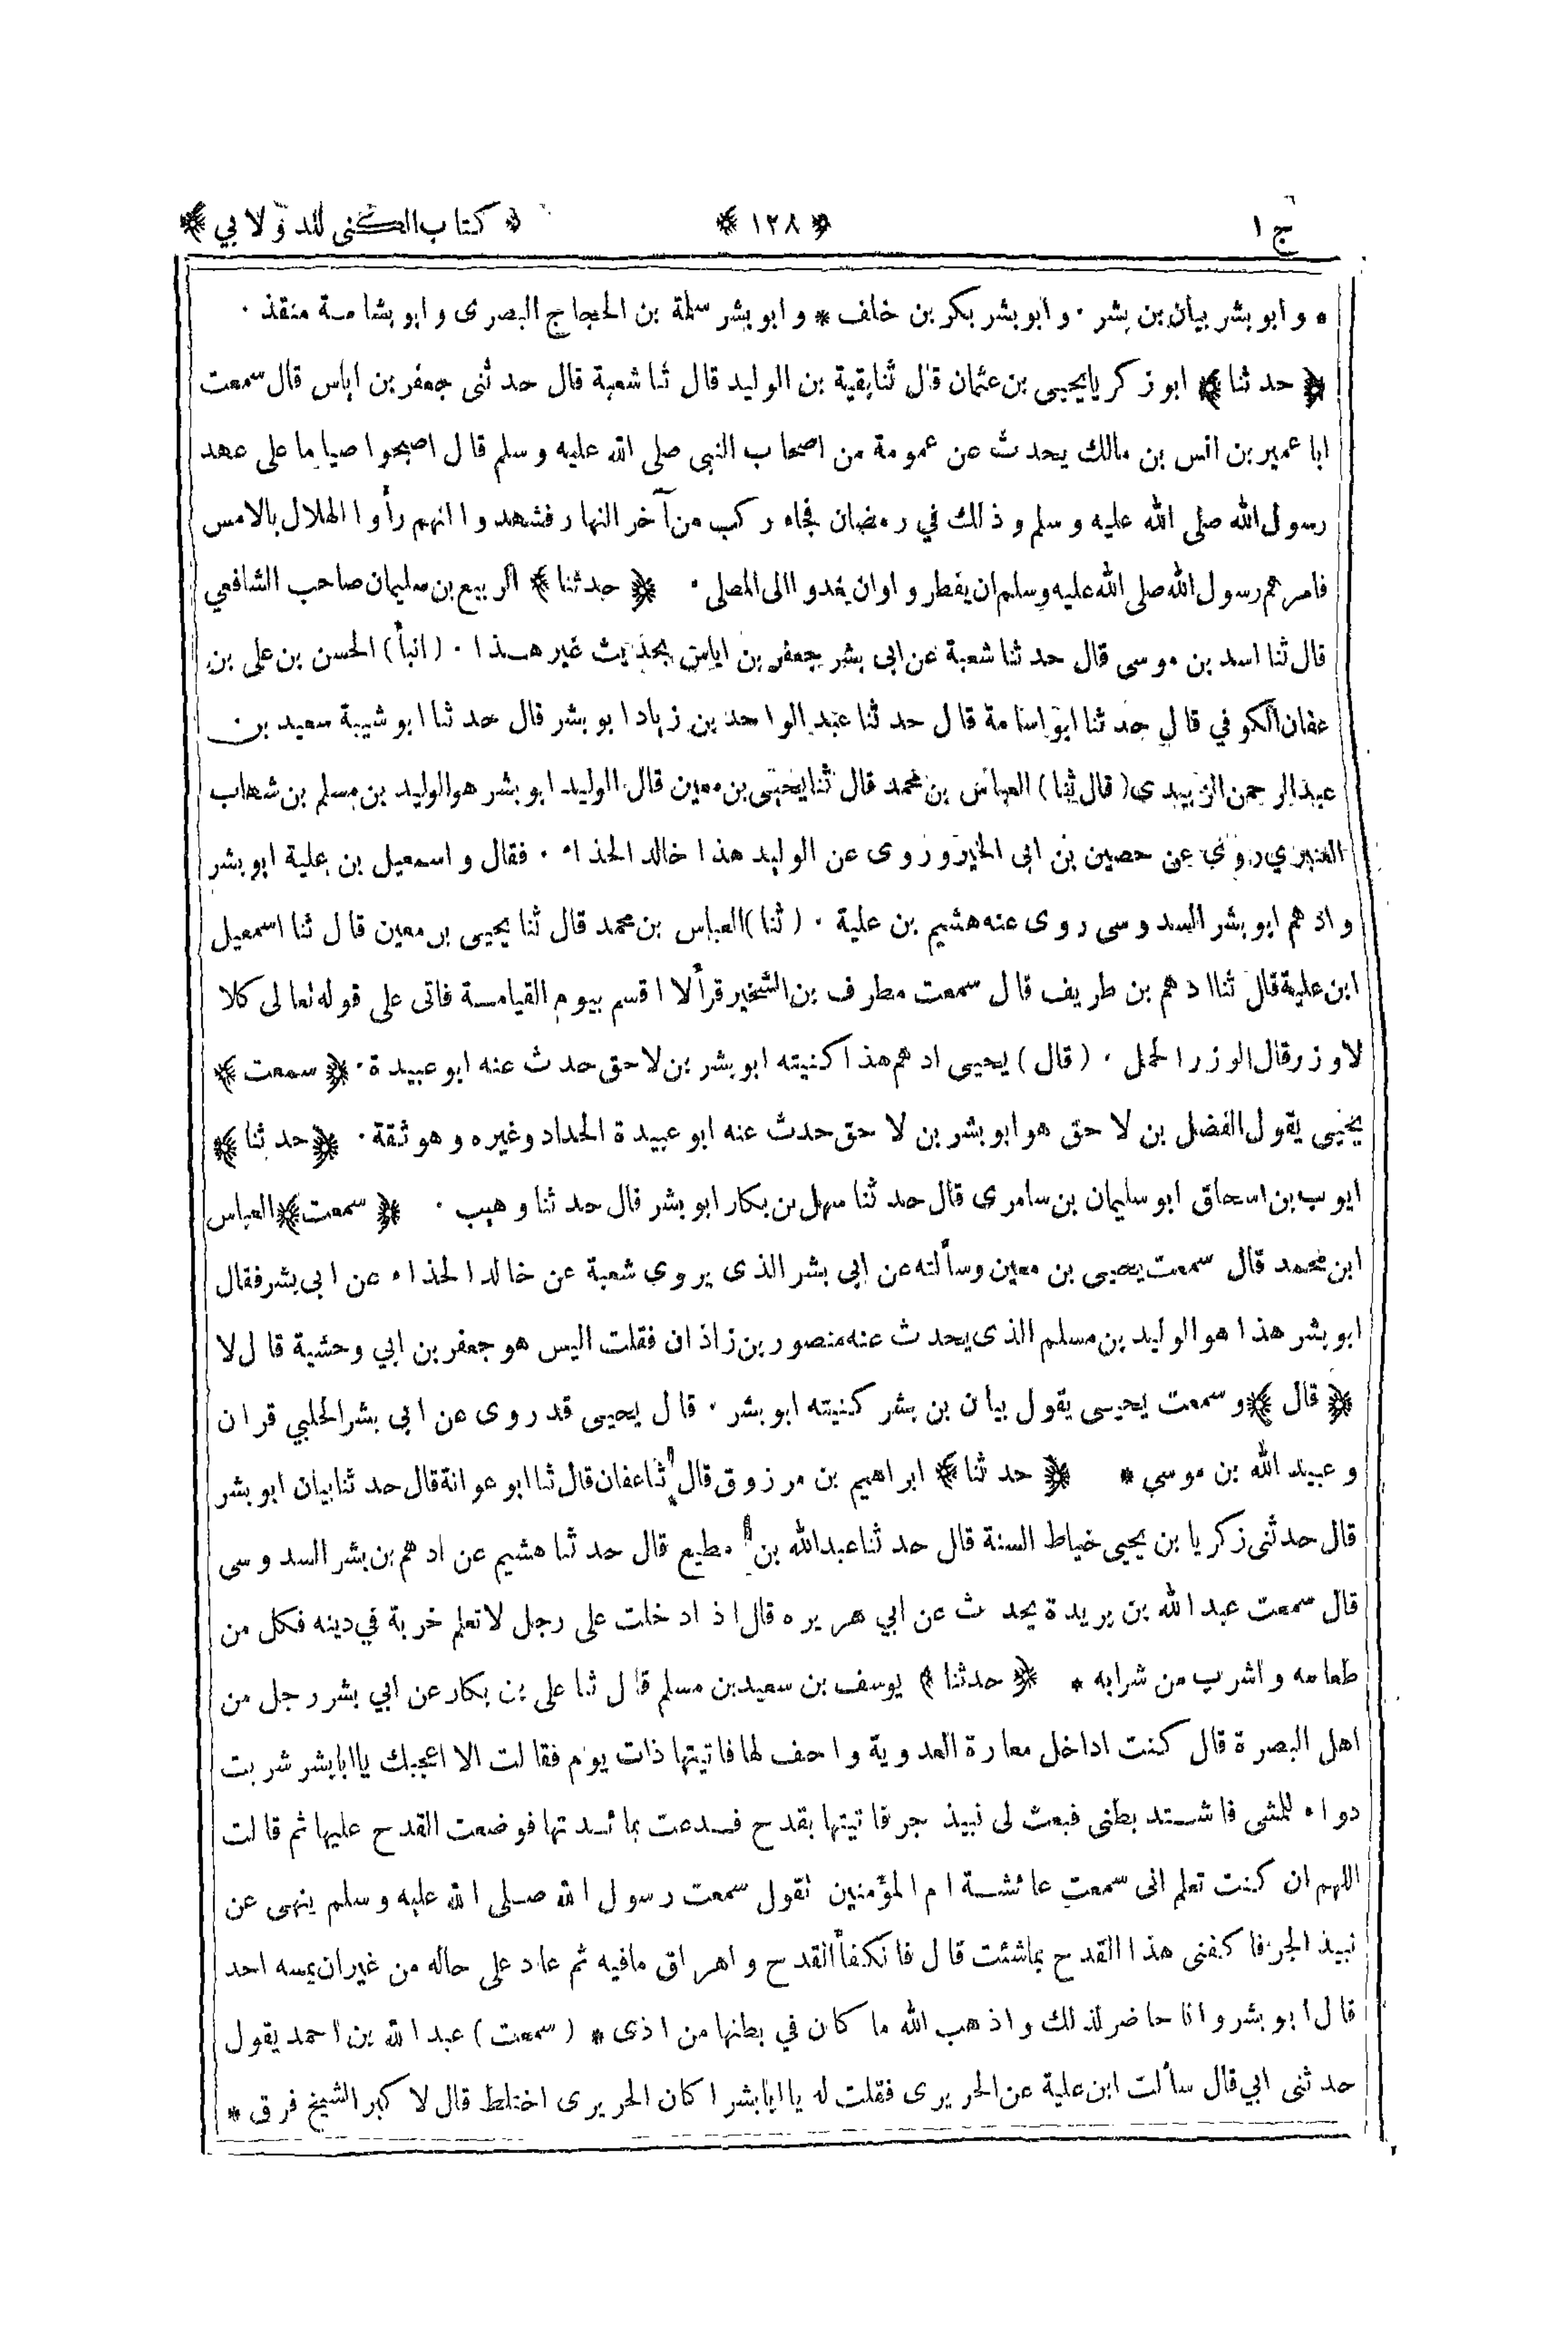 ج ١ ﴿ ١٢٨ ﴾ ﴿ كتاب الكنى للدولابي ﴾
* وابو بشر بيان بن بشر · وابو بشر بكر بن خلف * وابو بشر سلمة بن الحجاج البصرى وابو بشامة منقذ ·
﴿ حدثنا ﴾ ابو زكريا يحيى بن عثمان قال ثنا بقية بن الوليد قال ثنا شعبة قال حدثنى جعفر بن اياس قال سمعت
ابا عمير بن انس بن مالك يحدث عن عمومة من اصحاب النبى صلى الله عليه وسلم قال اصبحوا صياما على عهد
رسول الله صلى الله عليه وسلم وذلك في رمضان فجاء ركب من آخر النهار فشهدوا انهم رأوا الهلال بالامس
فامرهم رسول الله صلى الله عليه وسلم ان يفطروا وان يغدوا الى المصلى · ﴿ حدثنا ﴾ الربيع بن سليمان صاحب الشافعي
قال ثنا اسد بن موسى قال حدثنا شعبة عن ابى بشر جعفر بن اياس بحديث غير هذا · ( انبأ ) الحسن بن على بن
عفان الكوفي قال حدثنا ابو اسامة قال حدثنا عبد الواحد بن زياد ابو بشر قال حدثنا ابو شيبة سعيد بن
عبد الرحمن الزبيدى ( قال ثنا ) العباس بن محمد قال ثنا يحيى بن معين قال الوليد ابو بشر هو الوليد بن مسلم بن شهاب
العنبري روى عن حصين بن ابى الخير وروى عن الوليد هذا خالد الحذاء · فقال واسمعيل بن علية ابو بشر
وادهم ابو بشر السدوسى روى عنه هشيم بن علية · ( ثنا ) العباس بن محمد قال ثنا يحيى بن معين قال ثنا اسمعيل
ابن علية قال ثنا ادهم بن طريف قال سمعت مطرف بن الشخير قرأ لا اقسم بيوم القيامة فاتى على قوله تعالى كلا
لا وزر قال الوزر الحمل · ( قال ) يحيى ادهم هذا كنيته ابو بشر بن لاحق حدث عنه ابو عبيدة · ﴿ سمعت ﴾
يحيى يقول الفضل بن لاحق هو ابو بشر بن لاحق حدث عنه ابو عبيدة الحداد وغيره وهو ثقة · ﴿ حدثنا ﴾
ايوب بن اسحاق ابو سليمان بن سامرى قال حدثنا سهل بن بكار ابو بشر قال حدثنا وهيب · ﴿ سمعت ﴾ العباس
ابن محمد قال سمعت يحيى بن معين وسألته عن ابى بشر الذى يروى شعبة عن خالد الحذاء عن ابى بشر فقال
ابو بشر هذا هو الوليد بن مسلم الذى يحدث عنه منصور بن زاذان فقلت اليس هو جعفر بن ابي وحشية قال لا
﴿ قال ﴾ وسمعت يحيى يقول بيان بن بشر كنيته ابو بشر · قال يحيى قد روى عن ابى بشر الحلبي قران
وعبيد الله بن موسي * ﴿ حدثنا ﴾ ابراهيم بن مرزوق قال ثنا عفان قال ثنا ابو عوانة قال حدثنا بيان ابو بشر
قال حدثنى زكريا بن يحيى خياط السنة قال حدثنا عبد الله بن مطيع قال حدثنا هشيم عن ادهم بن بشر السدوسى
قال سمعت عبد الله بن بريدة يحدث عن ابي هريره قال اذا دخلت على رجل لا تعلم خربة في دينه فكل من
طعامه واشرب من شرابه * ﴿ حدثنا ﴾ يوسف بن سعيد بن مسلم قال ثنا على بن بكار عن ابي بشر رجل من
اهل البصرة قال كنت اداخل معارة العدوية واحف لها فاتيتها ذات يوم فقالت الا اعجبك يا ابا بشر شربت
دواء للمشى فاشتد بطنى فبعث لى نبيذ جر فاتيتها بقدح فدعت بمائدتها فوضعت القدح عليها ثم قالت
اللهم ان كنت تعلم انى سمعت عائشة ام المؤمنين تقول سمعت رسول الله صلى الله عليه وسلم ينهى عن
نبيذ الجر فاكفنى هذا القدح بما شئت قال فانكفأ القدح واهراق مافيه ثم عاد على حاله من غير ان يمسه احد
قال ابو بشر وانا حاضر لذلك واذهب الله ما كان في بطنها من اذى * ( سمعت ) عبد الله بن احمد يقول
حدثنى ابي قال سألت ابن علية عن الحريرى فقلت له يا ابا بشر اكان الحريرى اختلط قال لا كبر الشيخ فرق *